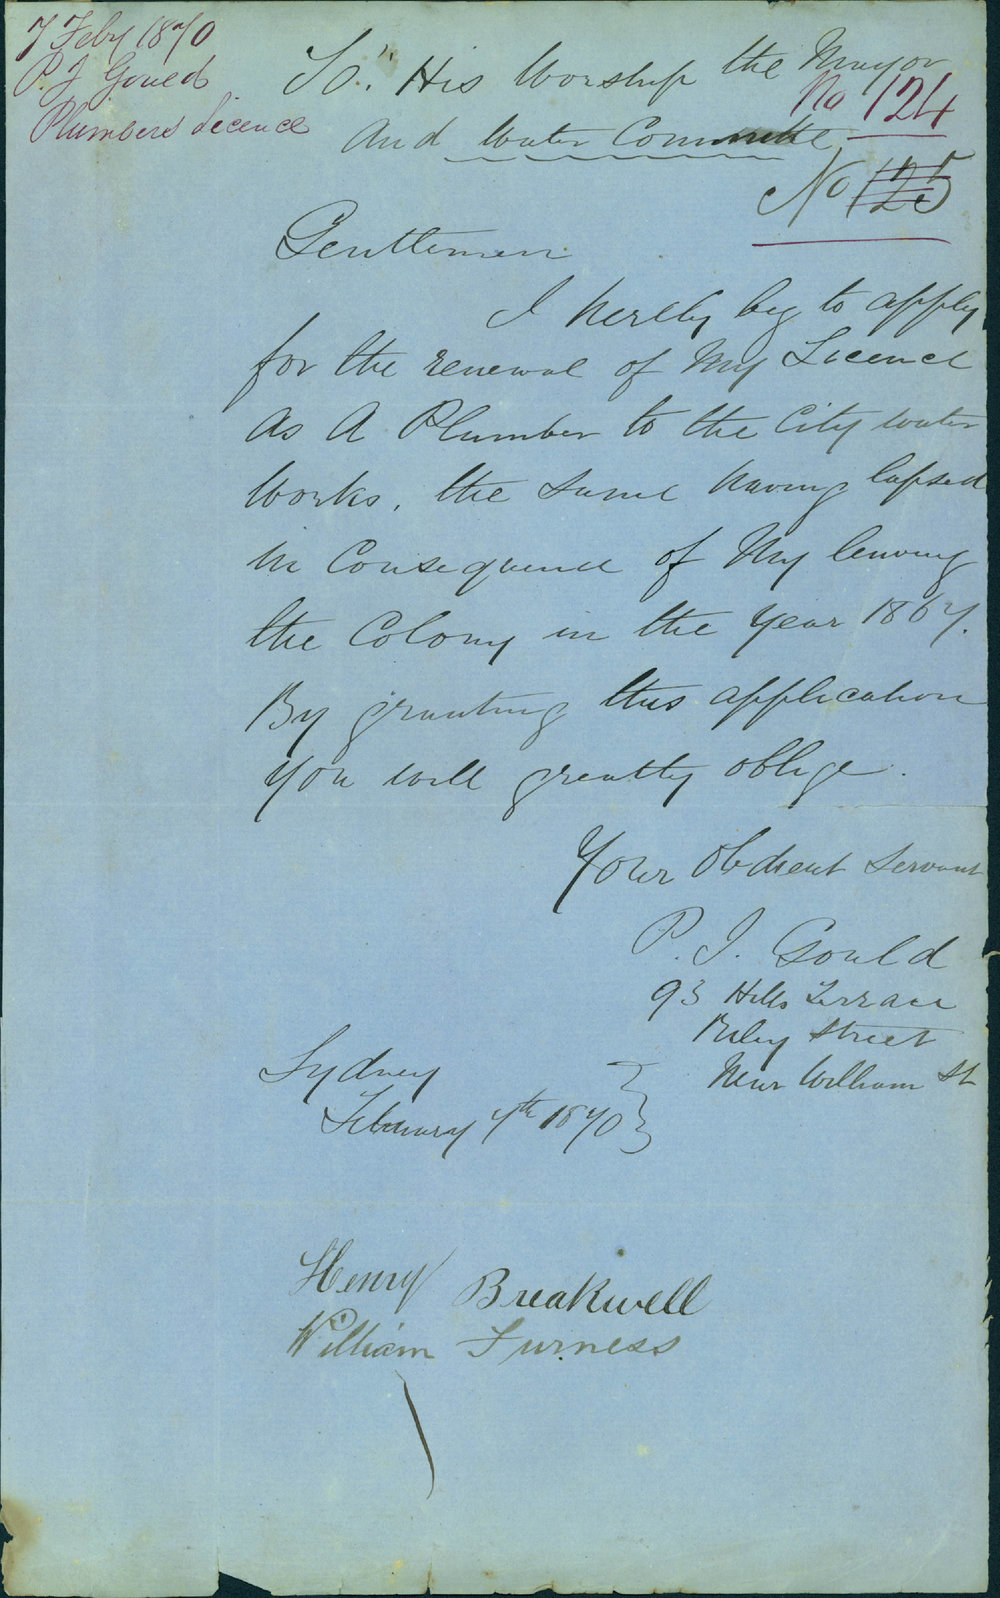 7 Feby 1870
P. J. Gould
Plumbers Licence
To. His Worship the Mayor
No 124
And Water Committe
No 125
Gentlemen
I hereby beg to apply
for the renewal of My Licence
As A Plumber to the City Water
Works, the same having lapsed
in Consequence of My leaving
the Colony in the year 1867.
By granting this application
you will greatly oblige.
Your Obdient Servant
P. J. Gould
93 Hills Terrace
Riley Street
Near William St
Sydney
February 7th 1870
Henry Breakwell
William Furness